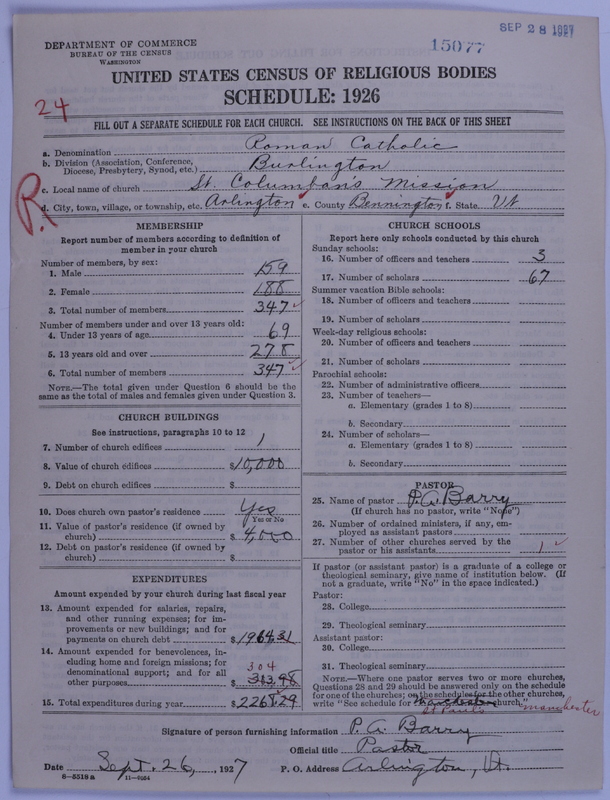 SEP 28 1927
15077
DEPARTMENT OF COMMERCE
BUREAU OF THE CENSUS
WASHINGTON
UNITED STATES CENSUS OF RELIGIOUS BODIES
SCHEDULE: 1926
24
FILL OUT A SEPARATE SCHEDULE FOR EACH CHURCH. SEE INSTRUCTIONS ON THE BACK OF THIS SHEET
R.
a. Denomination Roman Catholic
b. Division (Association, Conference, Diocese, Presbytery, Synod, etc.) Burlington
c. Local name of church St. Columban's Mission
d. City, town, village, or township, etc. Arlington e. County Bennington f. State Vt
MEMBERSHIP
Report number of members according to definition of
member in your church
Number of members, by sex:
1. Male 159
2. Female 188
3. Total number of members 347
Number of members under and over 13 years old:
4. Under 13 years of age 69
5. 13 years old and over 278
6. Total number of members 347
NOTE.—The total given under Question 6 should be the
same as the total of males and females given under Question 3.
CHURCH BUILDINGS
See instructions, paragraphs 10 to 12
7. Number of church edifices 1
8. Value of church edifices $10,000
9. Debt on church edifices $
10. Does church own pastor's residence Yes
Yes or No
11. Value of pastor's residence (if owned by
church) $4,000
12. Debt on pastor's residence (if owned by
church) $
EXPENDITURES
Amount expended by your church during last fiscal year
13. Amount expended for salaries, repairs,
and other running expenses; for im-
provements or new buildings; and for
payments on church debt $1964.31
14. Amount expended for benevolences, in-
cluding home and foreign missions; for
denominational support; and for all 304
other purposes $
15. Total expenditures during year $2268.29
CHURCH SCHOOLS
Report here only schools conducted by this church
Sunday schools:
16. Number of officers and teachers 3
17. Number of scholars 67
Summer vacation Bible schools:
18. Number of officers and teachers
19. Number of scholars
Week-day religious schools:
20. Number of officers and teachers
21. Number of scholars
Parochial schools:
22. Number of administrative officers
23. Number of teachers—
a. Elementary (grades 1 to 8)
b. Secondary
24. Number of scholars—
a. Elementary (grades 1 to 8)
b. Secondary
PASTOR
25. Name of pastor P. A. Barry
(If church has no pastor, write "None")
26. Number of ordained ministers, if any, em-
ployed as assistant pastors
27. Number of other churches served by the
pastor or his assistants 1
If pastor (or assistant pastor) is a graduate of a college or
theological seminary, give name of institution below. (If
not a graduate, write "No" in the space indicated.)
Pastor:
28. College
29. Theological seminary
Assistant pastor:
30. College
31. Theological seminary
NOTE.—Where one pastor serves two or more churches,
Questions 28 and 29 should be answered only on the schedule
for one of the churches; on the schedules for the other churches,
write "See schedule for church." Manchester
St Paul's
Signature of person furnishing information P. A. Barry
Official title Pastor
Date Sept. 26, 1927 P. O. Address Arlington, Vt.
8—5518a 11—9554